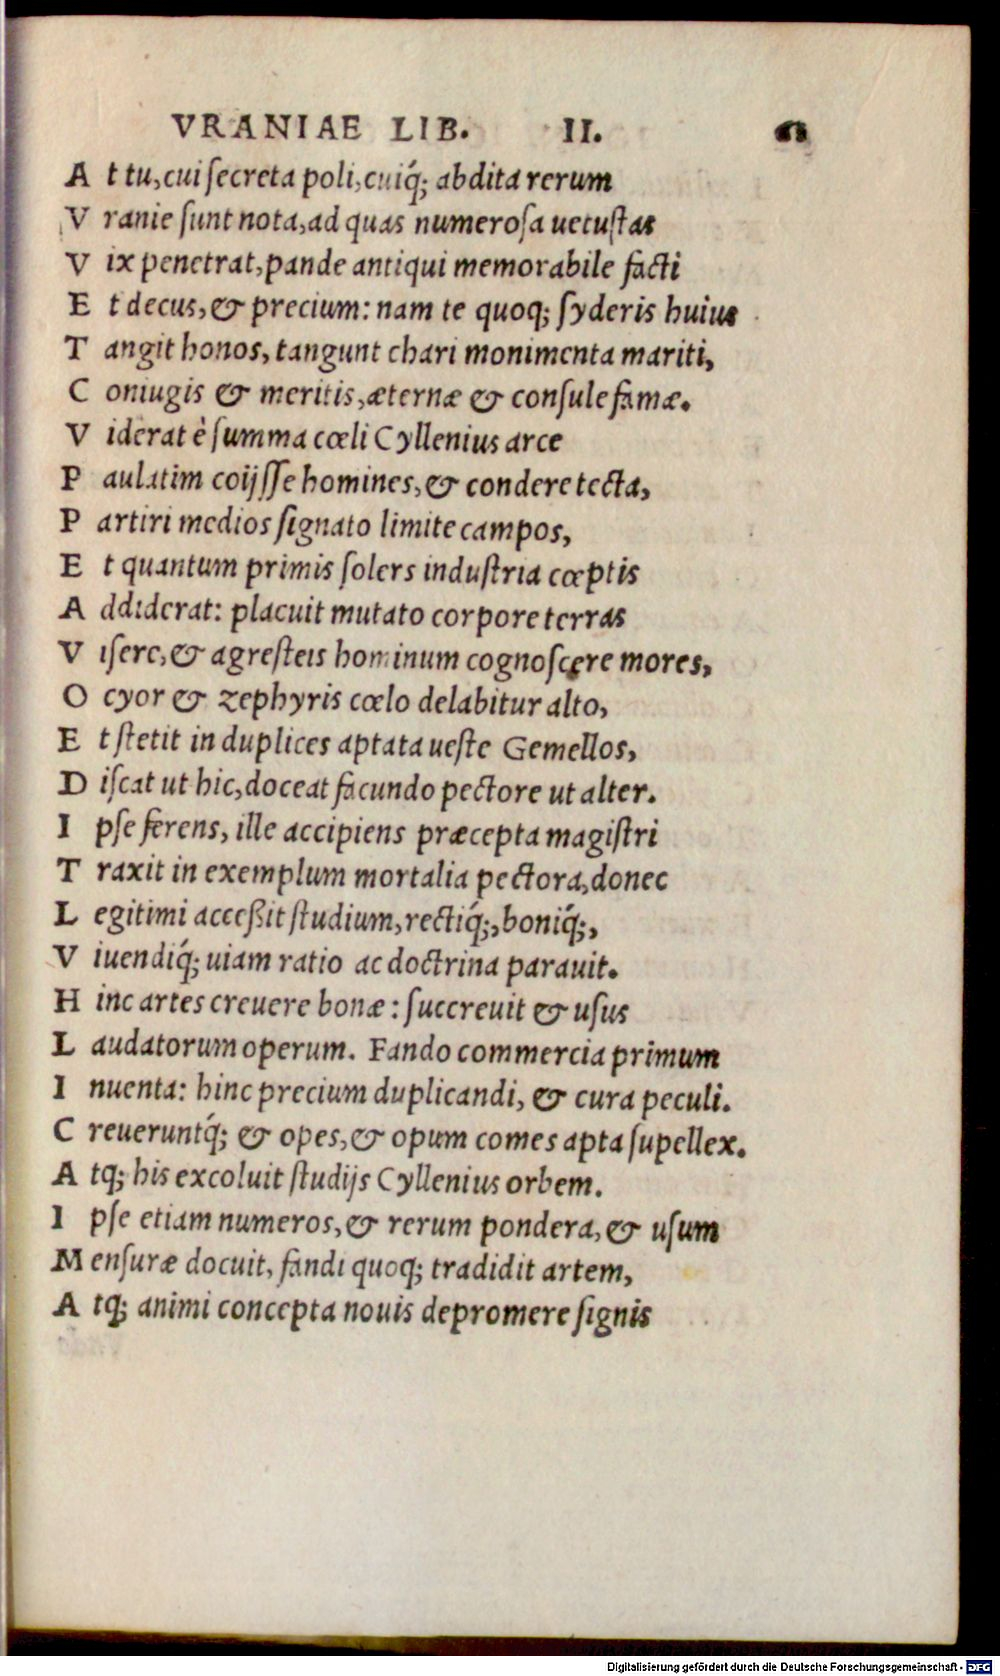 VRANIAE LIB. II.
A t tu, cui ſecreta poli, cuiq́; abdita rerum
V ranie ſunt nota, ad quas numeroſa uetuſtas
V ix penetrat, pande antiqui memorabile facti
E t decus, & precium: nam te quoq; ſyderis huius
T angit honos, tangunt chari monimenta mariti,
C oniugis & meritis, æternæ & conſule famæ.
V iderat è ſumma cœli Cyllenius arce
P aulatim coijſſe homines, & condere tecta,
P artiri medios ſignato limite campos,
E t quantum primis ſolers induſtria cœptis
A ddiderat: placuit mutato corpore terras
V iſere, & agreſteis hominum cognoſcere mores,
O cyor & zephyris cœlo delabitur alto,
E t ſtetit in duplices aptata ueſte Gemellos,
D iſcat ut hic, doceat facundo pectore ut alter.
I pſe ferens, ille accipiens præcepta magiſtri
T raxit in exemplum mortalia pectora, donec
L egitimi acceßit ſtudium, rectiq́;, boniq́;,
V iuendiq́; uiam ratio ac doctrina parauit.
H inc artes creuere bonæ: ſuccreuit & uſus
L audatorum operum. Fando commercia primum
I nuenta: hinc precium duplicandi, & cura peculi.
C reueruntq́; & opes, & opum comes apta ſupellex.
A tq; his excoluit ſtudijs Cyllenius orbem.
I pſe etiam numeros, & rerum pondera, & uſum
M enſuræ docuit, fandi quoq; tradidit artem,
A tq; animi concepta nouis depromere ſignis
Digitalisierung gefördert durch die Deutsche Forschungsgemeinschaft - DFG